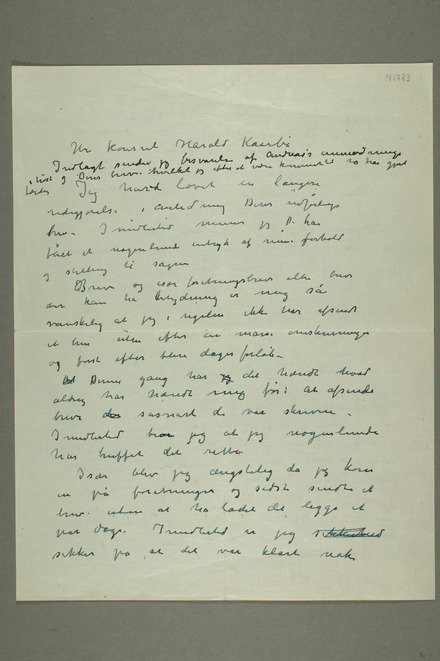 N1783
Hr Konsul Harald Kaarbø
Indlagt sender jeg besvarelse af Andreas's anmerkninger
i Deres brev. hvilket jeg efter at være kommet
Jeg havde lovet en længere
redegjørelse i anledning Deres udførlige
brev. Imidlertid mener jeg De har
fået et nogenlunde indtryk af min forhold
og stilling til sagen
Breve og især forretningsbreve eller breve
der kan ha betydning er mig så
vanskelig at jeg i regelen ikke har afsendt
et brev uden efter en masse omskrivninger
og først efter flere dages forløb.
Denne gang har det hændt hvad
aldrig har hændt mig før: at afsende
breve såsnart de var skrevne.
Imidlertid tror jeg at jeg nogenlunde
har truffet det rette
Især blev jeg ængstelig da jeg kom
ind på forretninger og sidst sendte et
brev uden at ha ladet det ligge et
par dage. Imidlertid er jeg
sikker på at det var klart nok